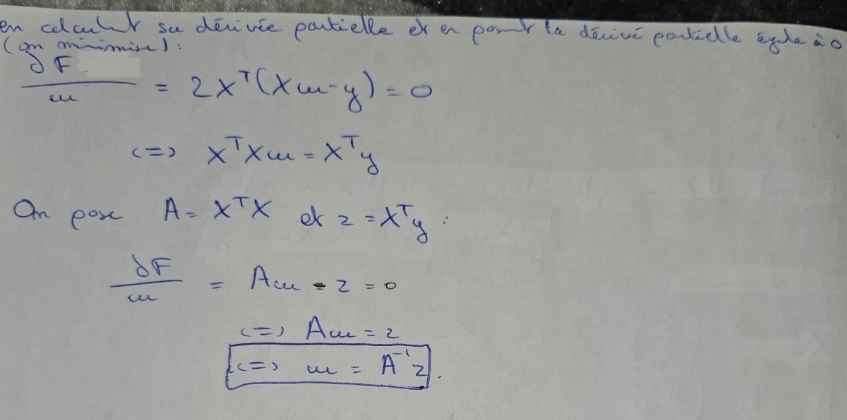 en calculant sa dérivée partielle et en posant la dérivé partielle égale à 0
(on minimise) :
∂F/m = 2X^T(Xm-y) = 0
<=> X^TXm = X^Ty
On pose A = X^TX et z = X^Ty :
∂F/m = Am - z = 0
<=> Am = z
<=> m = A^-1z.